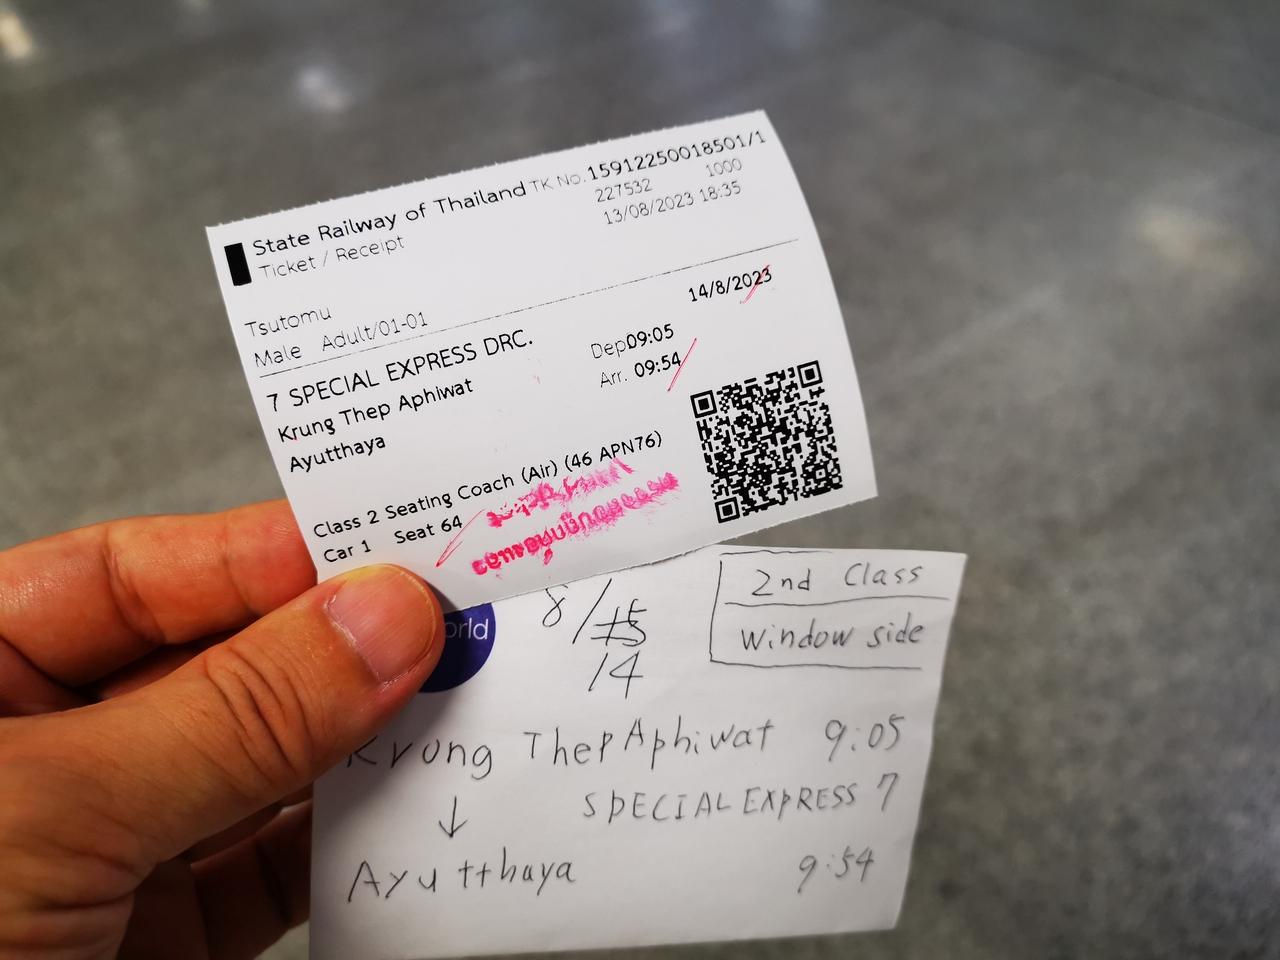 State Railway of Thailand TK No.15912250018501/1
Ticket / Receipt 227532 1000
13/08/2023 18:35
Tsutomu
Male Adult/01-01
14/8/2023
7 SPECIAL EXPRESS DRC.
Krung Thep Aphiwat Dep09:05
Ayutthaya Arr. 09:54
Class 2 Seating Coach (Air) (46 APN76)
Car 1 Seat 64
orld
8/15
/14
2nd Class
window side
Krung Thep Aphiwat 9:05
↓ SPECIAL EXPRESS 7
Ayutthaya 9:54